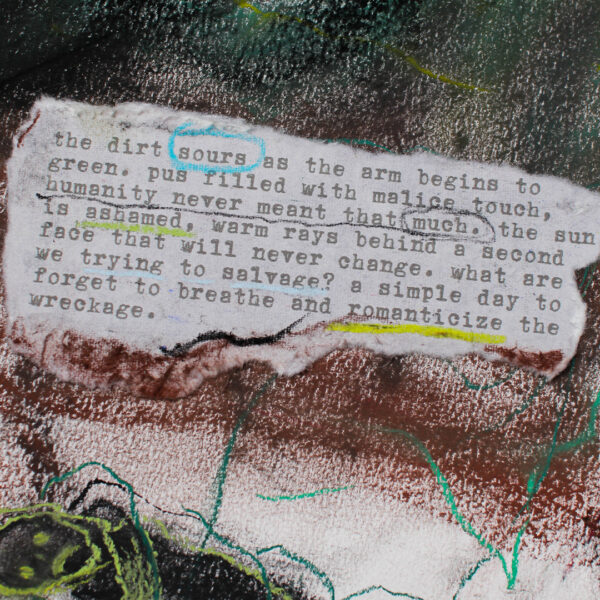 the dirt sours as the arm begins to
green. pus filled with malice touch,
humanity never meant that much. the sun
is ashamed, warm rays behind a second
face that will never change. what are
we trying to salvage? a simple day to
forget to breathe and romanticize the
wreckage.